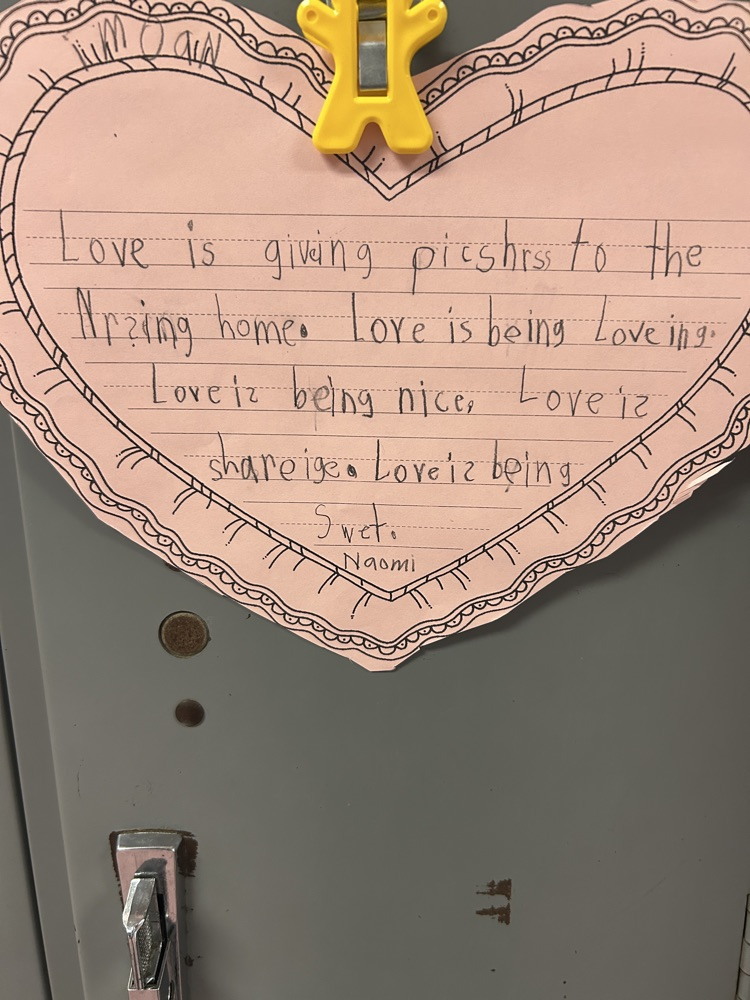 Naomi
Love is giveing picshrss to the
Nrzing home. Love is being Loveing.
Love iz being nice. Love iz
shareige. Love iz being
Swet.
Naomi